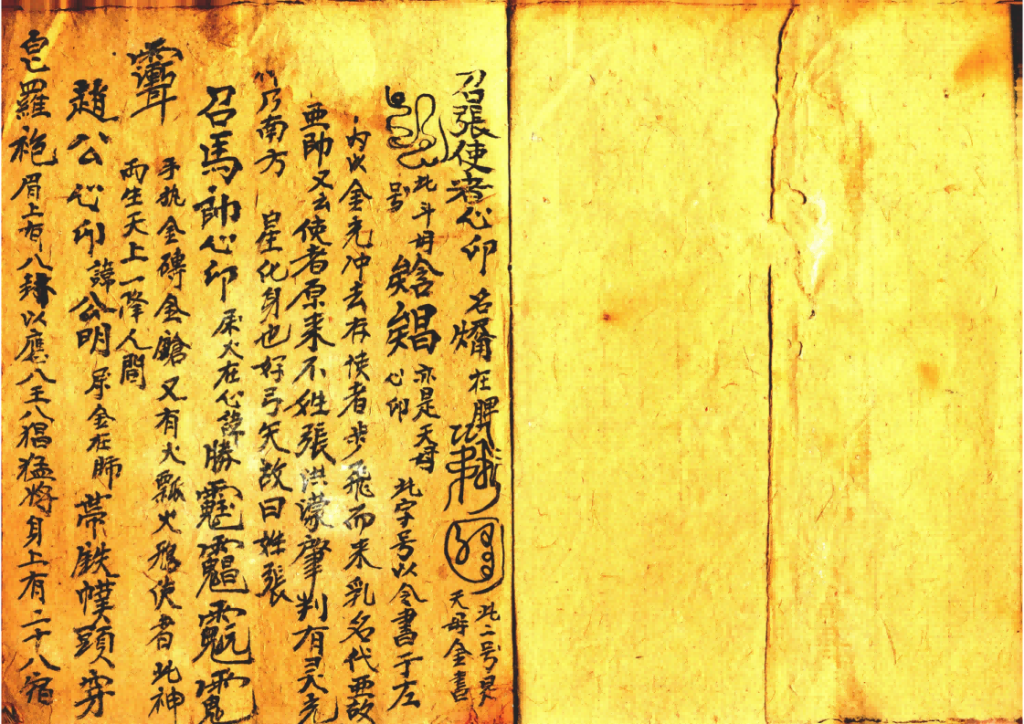 召張使者心印 名燆在脾
此二号灵
天母金書
此斗母
号 心印
亦是天母
此字号以令書于左
内此金光冲去存使者步飛而来乳名代亜故
亜帥又云使者原来不姓張洪濛肇判有灵光
乃南方 星化身也好弓矢故曰姓張
召馬帥心印 属火在心諱勝
手执金磚金鎗又有火瓢火鴉使者此神
両生天上一降人間
趙公心印 諱公明 属金在肺 帯鉄幞頭穿
皀羅袍眉上有八 以應八王八猖猛将身上有二十八宿